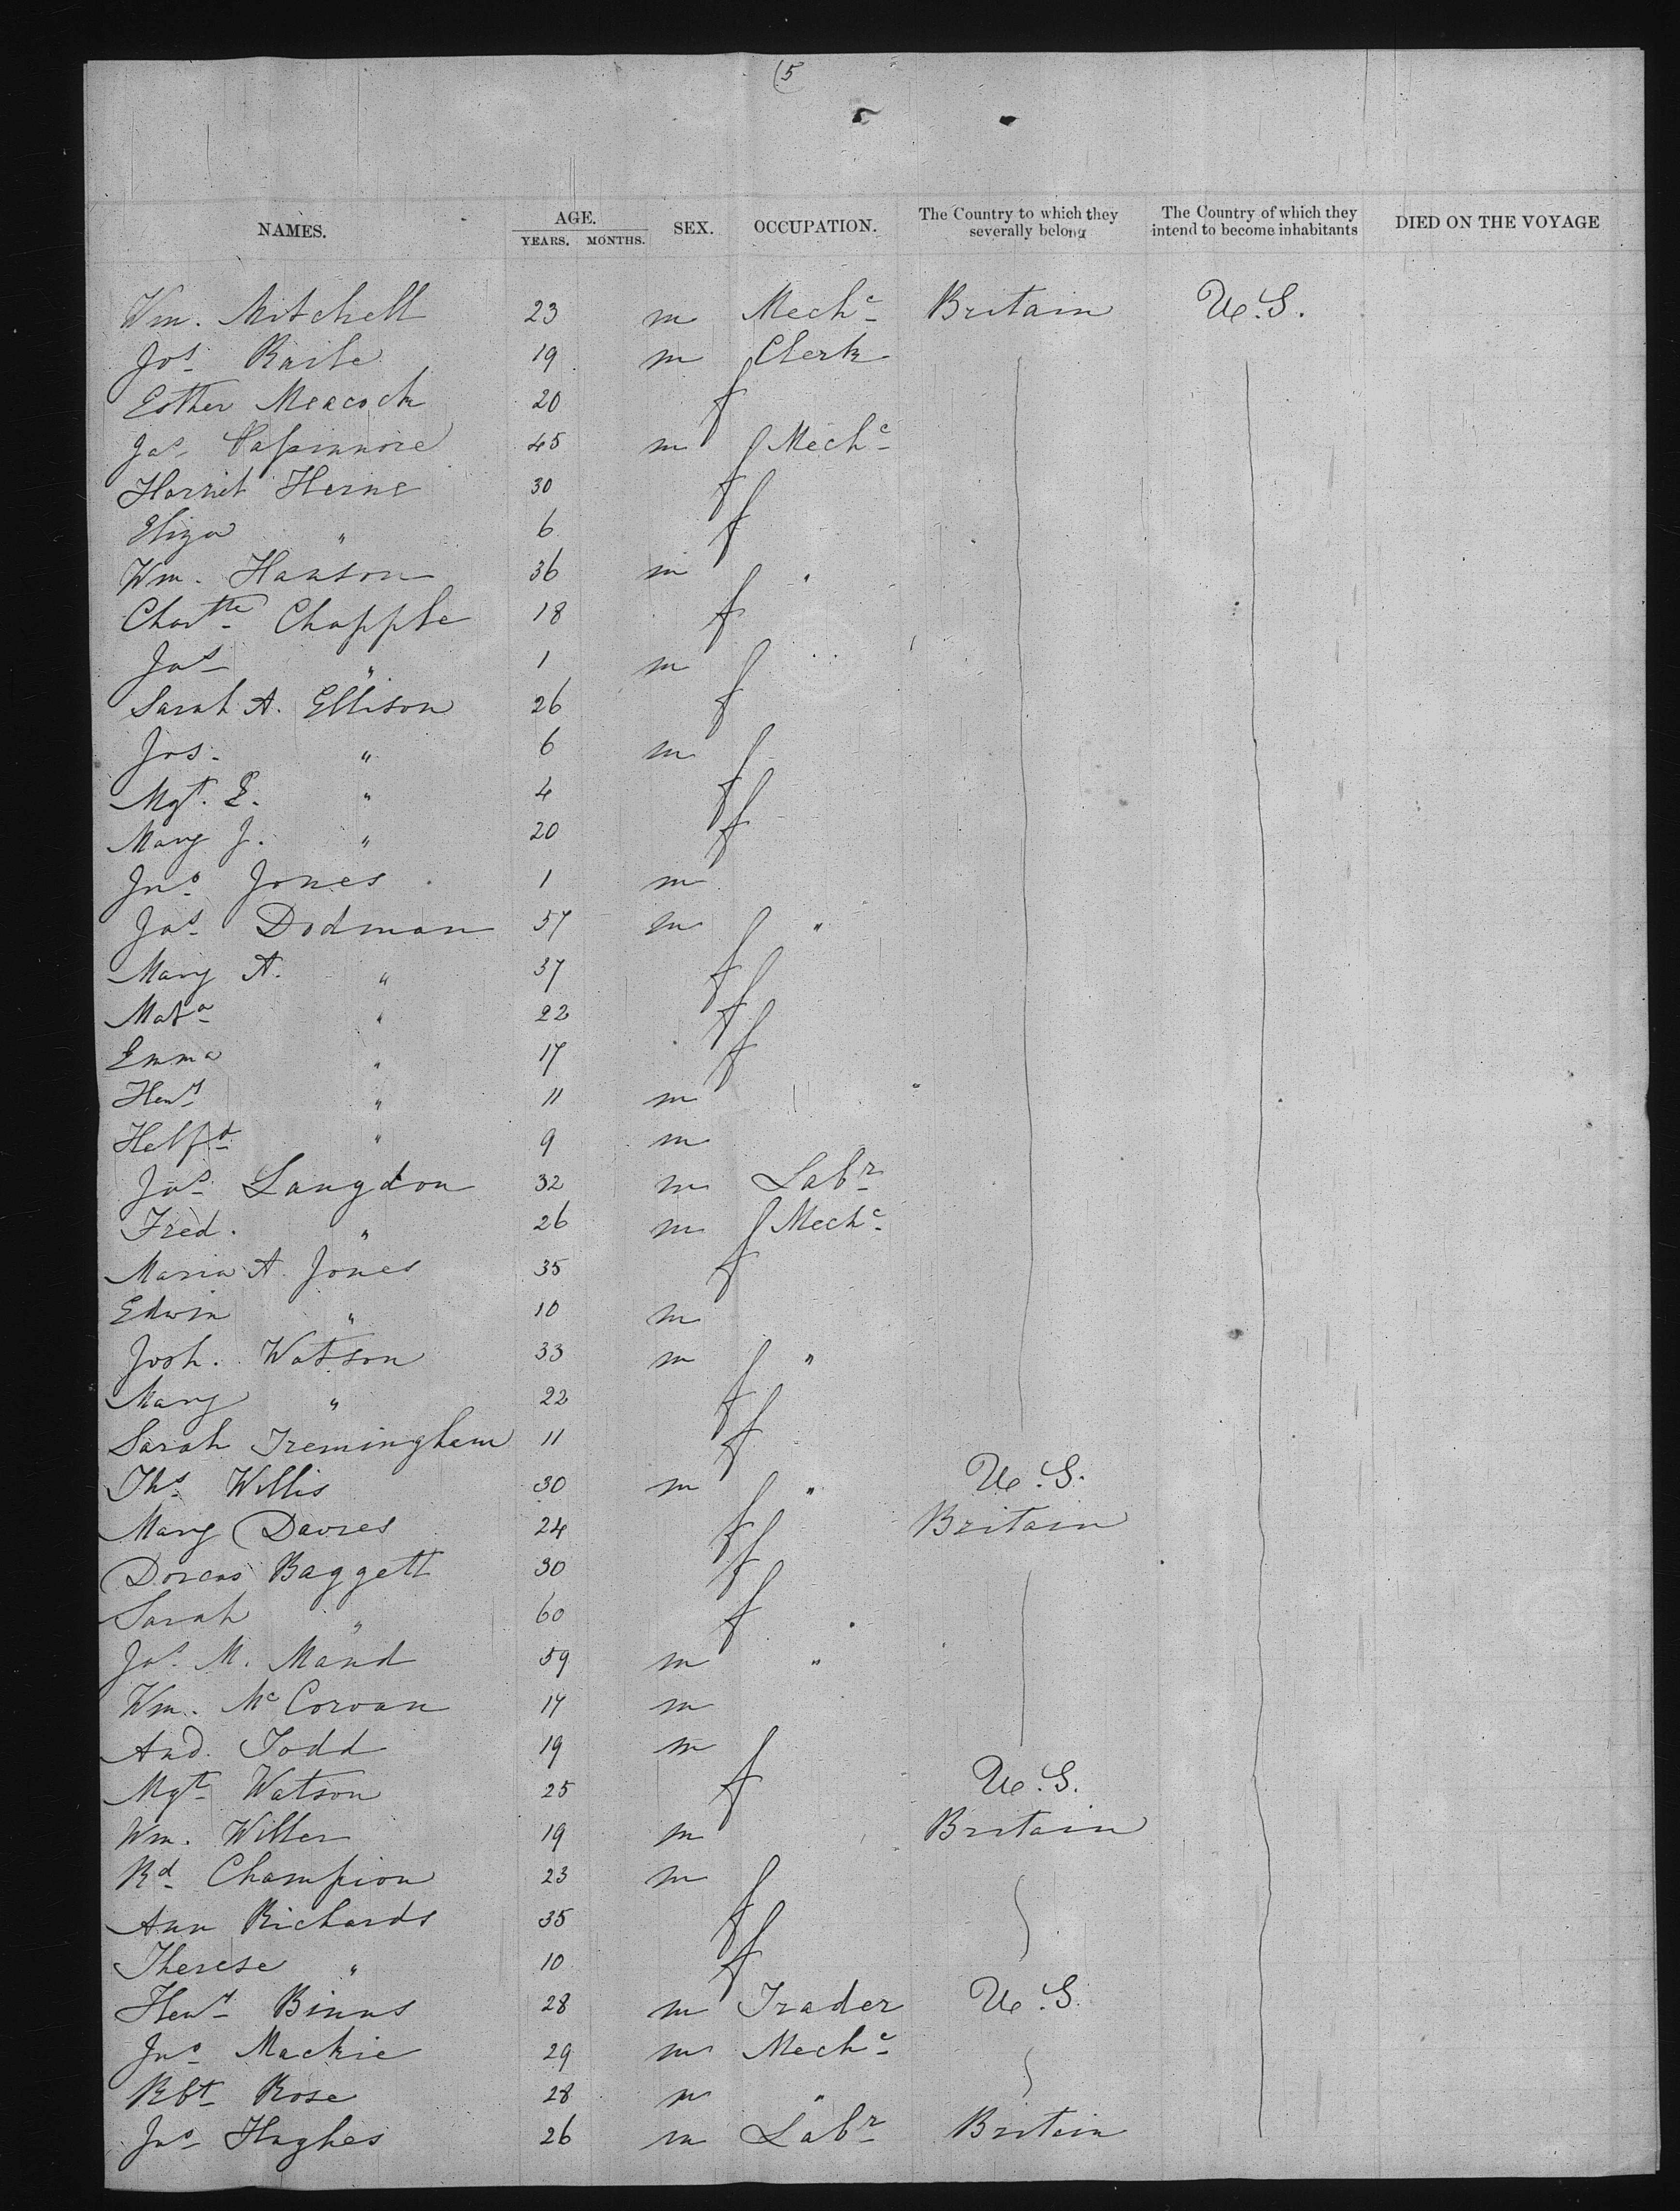 (5
NAMES. AGE. YEARS. MONTHS. SEX. OCCUPATION. The Country to which they severally belong The Country of which they intend to become inhabitants DIED ON THE VOYAGE
Wm. Mitchell 23 m Mechc Britain U.S.
Jos 19 m Clerk
Esther Meacock 20 f
Jas 45 m Mechc
Harriet Herne 30 f
Eliza " 6 f
Wm. Hanson 36 m "
Chartte Chapple 18 f
Jas " 1 m
Sarah A. Ellison 26 f
Jos. " 6 m
Mgt. E. " 4 f
Mary J. " 20 f
Jno Jones 1 m
Jas Dodman 57 m "
Mary A. " 37 f
Mata " 22 f
Emma " 17 f
Heny " 11 m
" 9 m
Jas Langdon 32 m Labr
Fred. " 26 m Mechc
Maria A. Jones 35 f
Edwin " 10 m
Josh. Watson 33 m "
Mary " 22 f
Sarah Tremingham 11 f
Ths Willis 30 m " U.S.
Mary Davies 24 f Britain
Dorcas Baggett 30 f
Sarah " 60 f
Jas. M. Mand 59 m "
Wm. McCorvan 17 m
And. Todd 19 m
Mgt Watson 25 f U.S.
Wm. Willer 19 m Britain
Rd Champion 23 m
Ann Richards 35 f
Therese " 10 f
Heny Binns 28 m Trader U.S.
Jno Mackie 29 m Mechc
Rbt Rose 28 m "
Jno Hughes 26 m Labr Britain